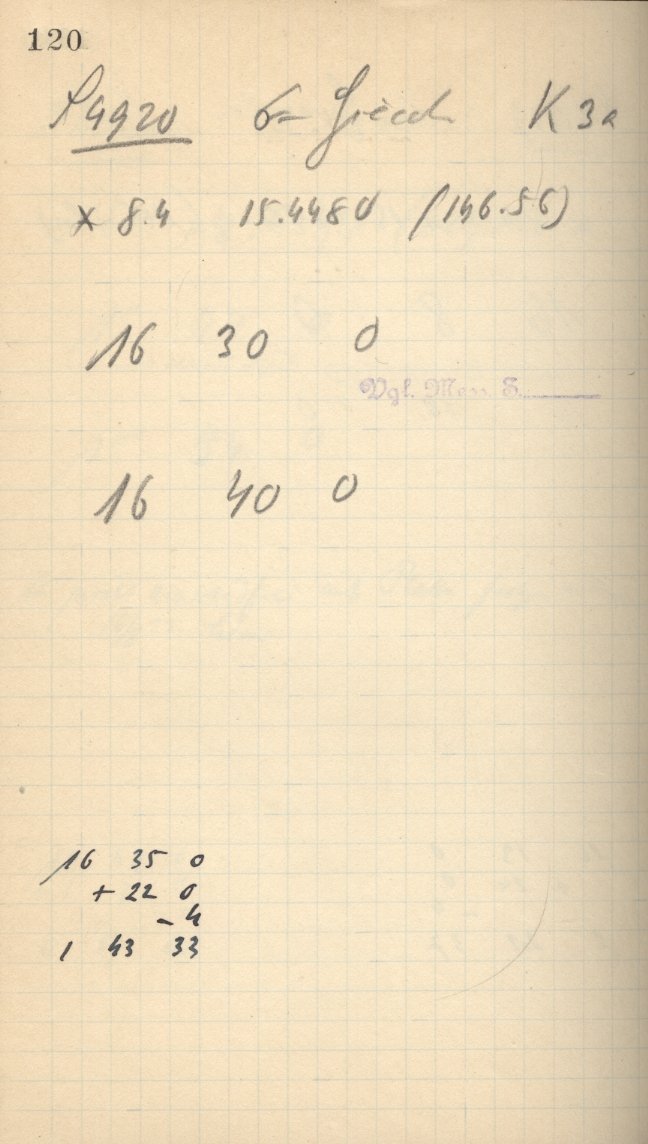 120
P4920 σ= K 3a
* 8.4 15.4480 (146.56)
16 30 0
Vgl. Mon. S.
16 40 0
16 35 0
+ 22 0
- 4
1 43 33